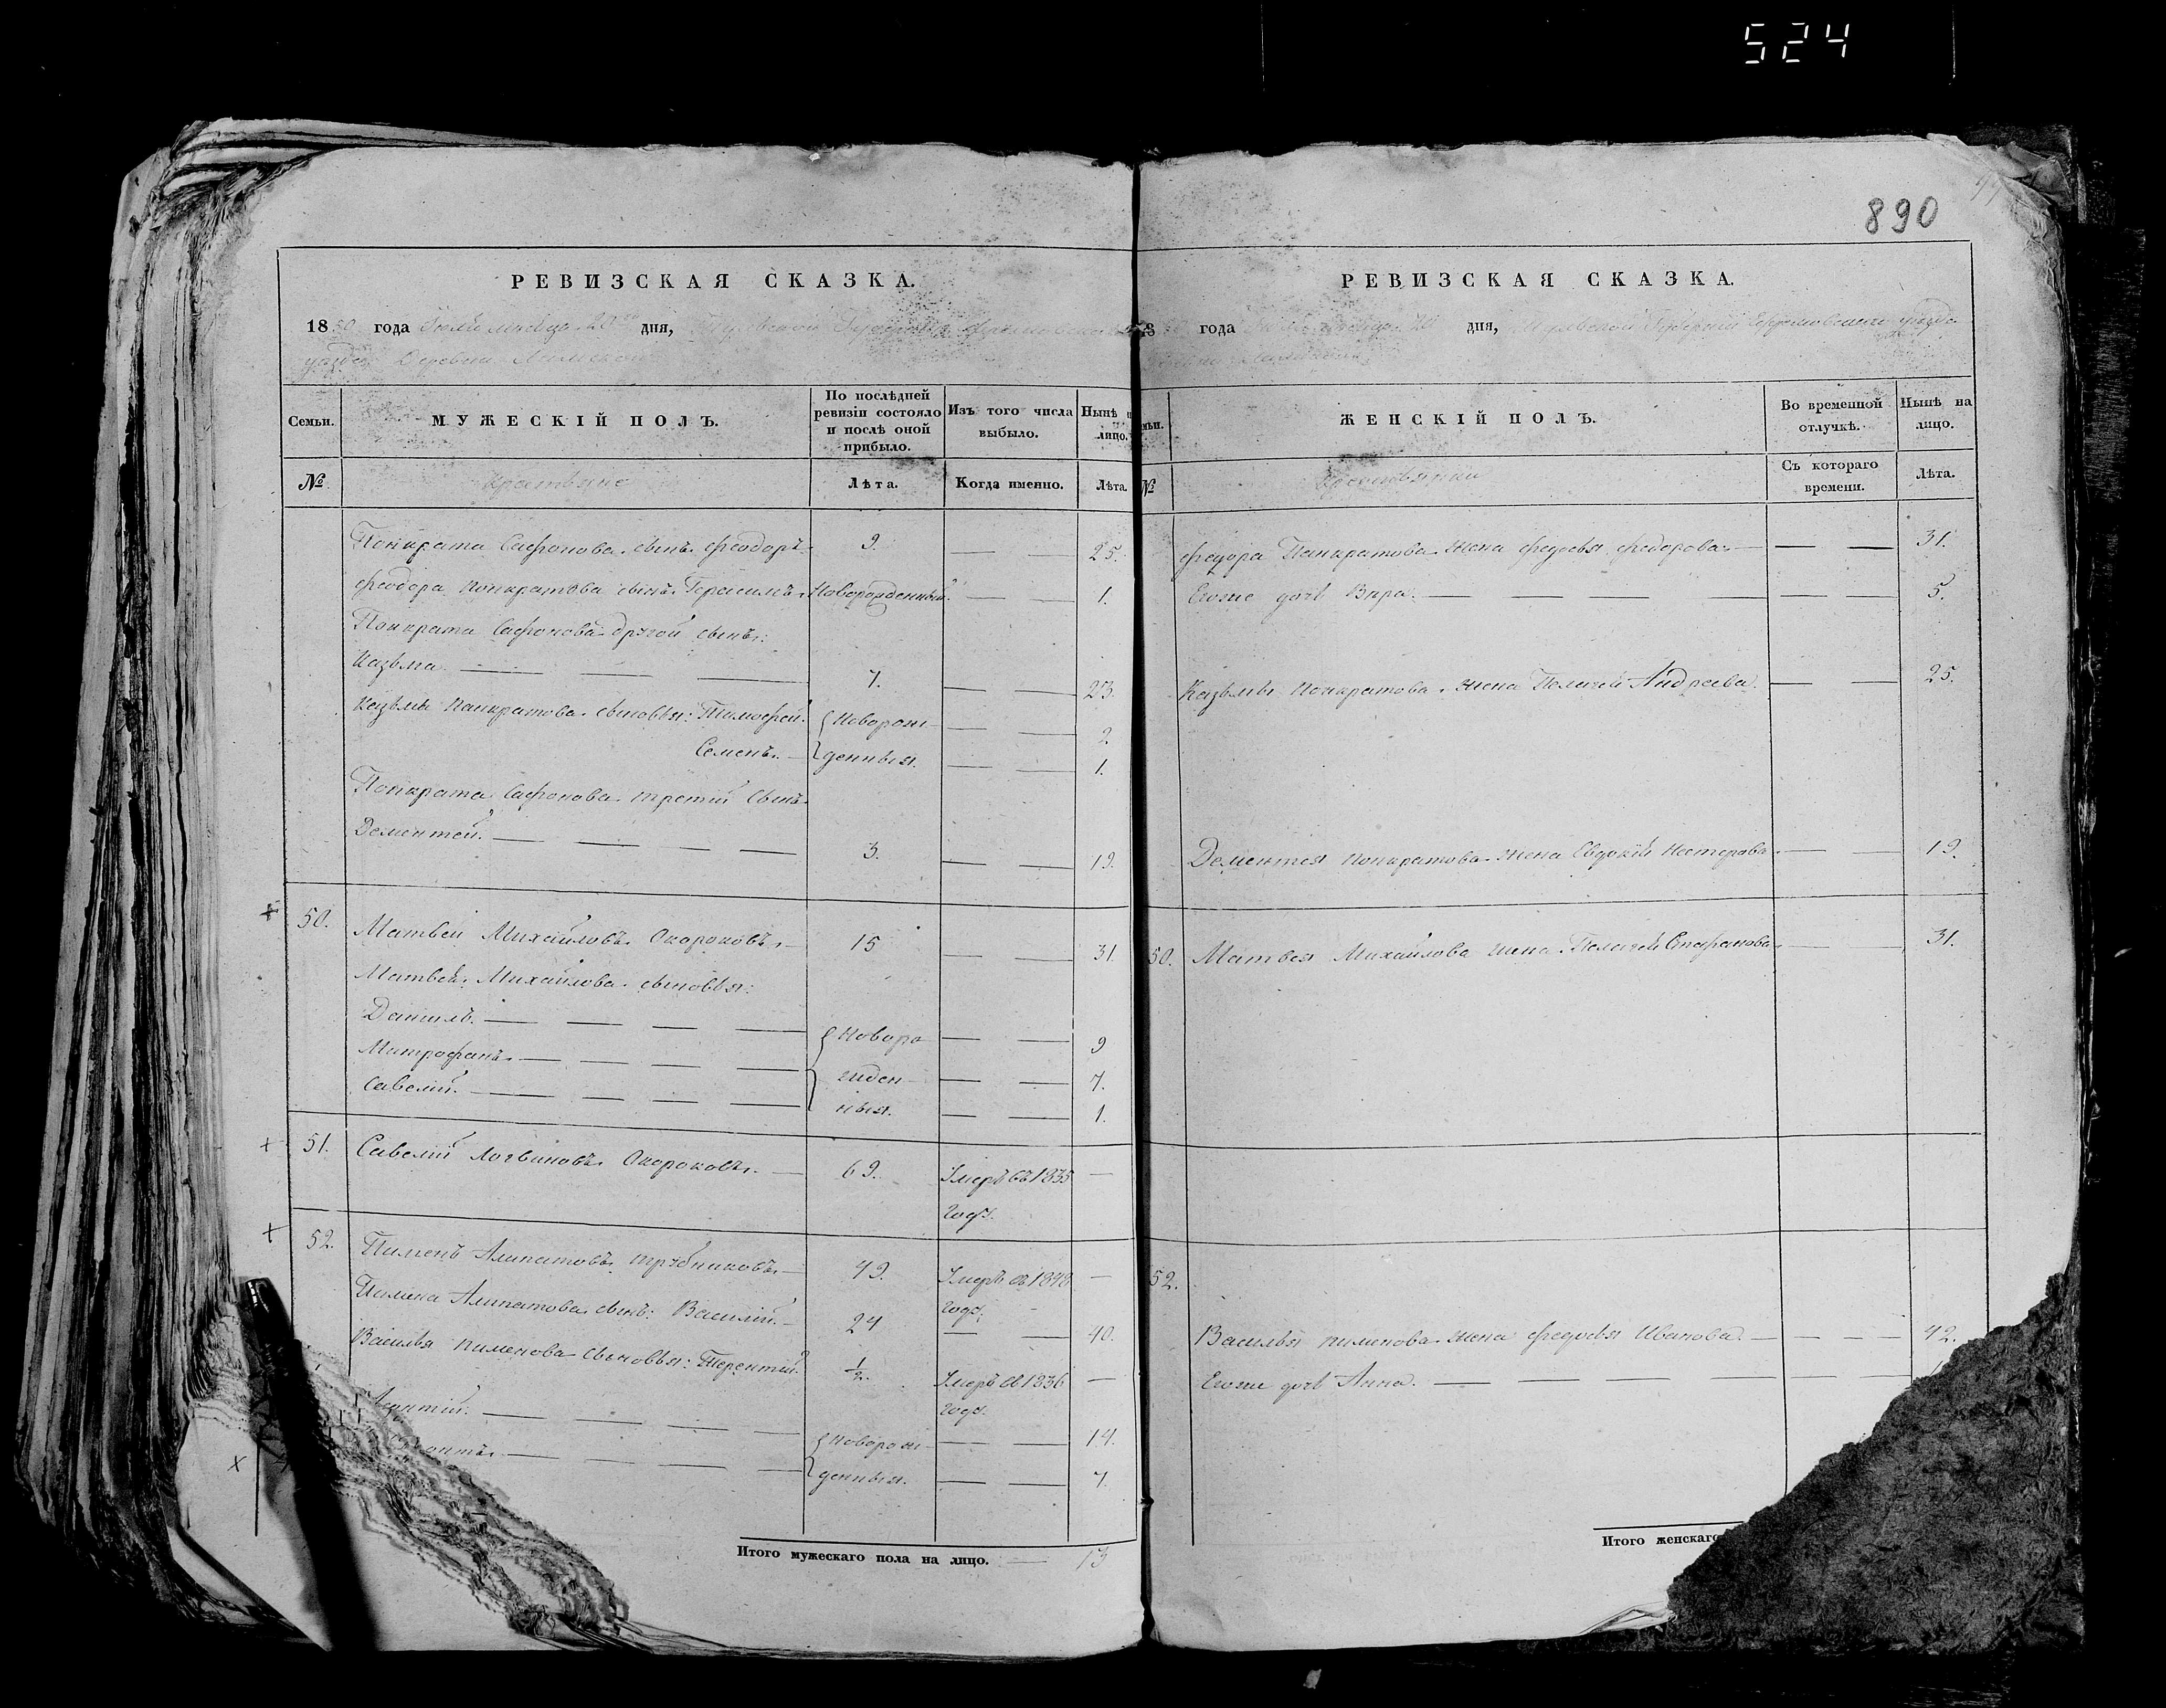 524
890
РЕВИЗСКАЯ СКАЗКА.
1850 года Іюля мѣсяца 20 дня, Тульской Губерніи
уѣзда Деревни
Семьи.
МУЖЕСКІЙ ПОЛЪ.
По послѣдней ревизіи состояло и послѣ оной прибыло.
Изъ того числа выбыло.
Нынѣ на лицо.
№
Крестьяне
Лѣта.
Когда именно.
Лѣта.
Понкрата Сафонова сынъ Феодоръ 9. — — 25.
Феодора Понкратова сынъ Герасимъ Новорожденный. — — 1.
Понкрата Сафонова другой сынъ:
Казьма — — — 7. — — 23.
Казьмы Панкратова сыновья: Тимофей. Новорож- — — 2.
Семенъ. — денныя. — — 1.
Понкрата Сафонова третій сынъ
Дементей. — — — — 3. — — 19.
50. Матвей Михайловъ Окороковъ — 15 — — 31.
Матвея Михайлова сыновья:
Данилъ. — — — — Новоро — — 9
Митрофанъ — — — — жден — — 7.
Савелій. — — — — ныя. — — 1.
51. Савелій Логвиновъ Окороковъ. — 69. Умеръ въ 1835 —
году.
52. Пименъ Алипатовъ Трубниковъ — 49. Умеръ въ 1848 —
году.
Пимена Алипатова сынъ: Василій. — 24 — — 40.
Василья Пименова сыновья: Терентій. 1/2. Умеръ въ 1836 —
году.
— — — — Новорож- — — 14.
— — — — денныя. — — 7.
Итого мужескаго пола на лицо. — 13
РЕВИЗСКАЯ СКАЗКА.
года Іюля мѣсяца 20 дня, Тульской Губерніи Ефремовскаго уѣзда
ЖЕНСКІЙ ПОЛЪ.
Во временной отлучкѣ.
Нынѣ на лицо.
№
Крестьянки
Съ котораго времени.
Лѣта.
Федора Панкратова жена Федосья Федорова — — — 31.
Евоже дочь Вира. — — — — — 5.
Казьмы Понкратова жена Пелагея Андреева. — — 25.
Дементея Понкратова жена Евдокія Нестерова. — — 19.
50. Матвея Михайлова жена Пелагея Стефанова — — 31.
52.
Василья Пименова жена Федосья Иванова. — — — — 42.
Евоже дочь Анна. — — — — — —
Итого женскаго